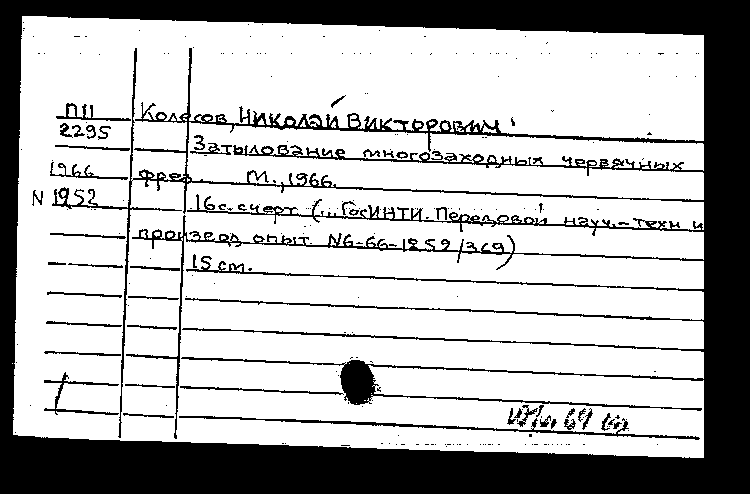 П11 Колосов, Николай Викторович
2295
Затылование многозаходных червячных
1966 фрез. М., 1966.
N 1952 16с. с черт. (... ГосИНТИ. Передовой науч.-техн и
производ опыт. N6-66-1252/369)
15 см.